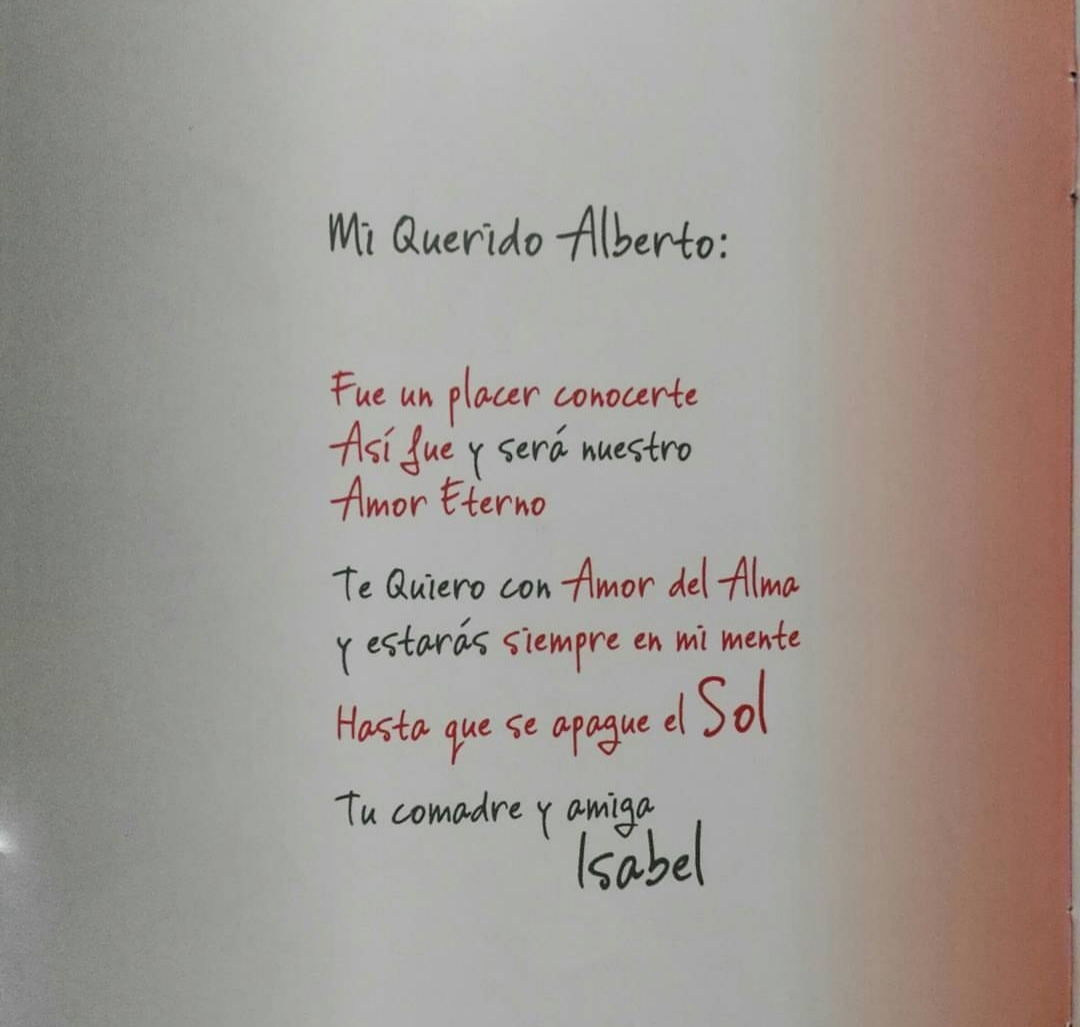 Mi Querido Alberto:
Fue un placer conocerte
Así fue y será nuestro
Amor Eterno
Te Quiero con Amor del Alma
y estarás siempre en mi mente
Hasta que se apague el Sol
Tu comadre y amiga
Isabel